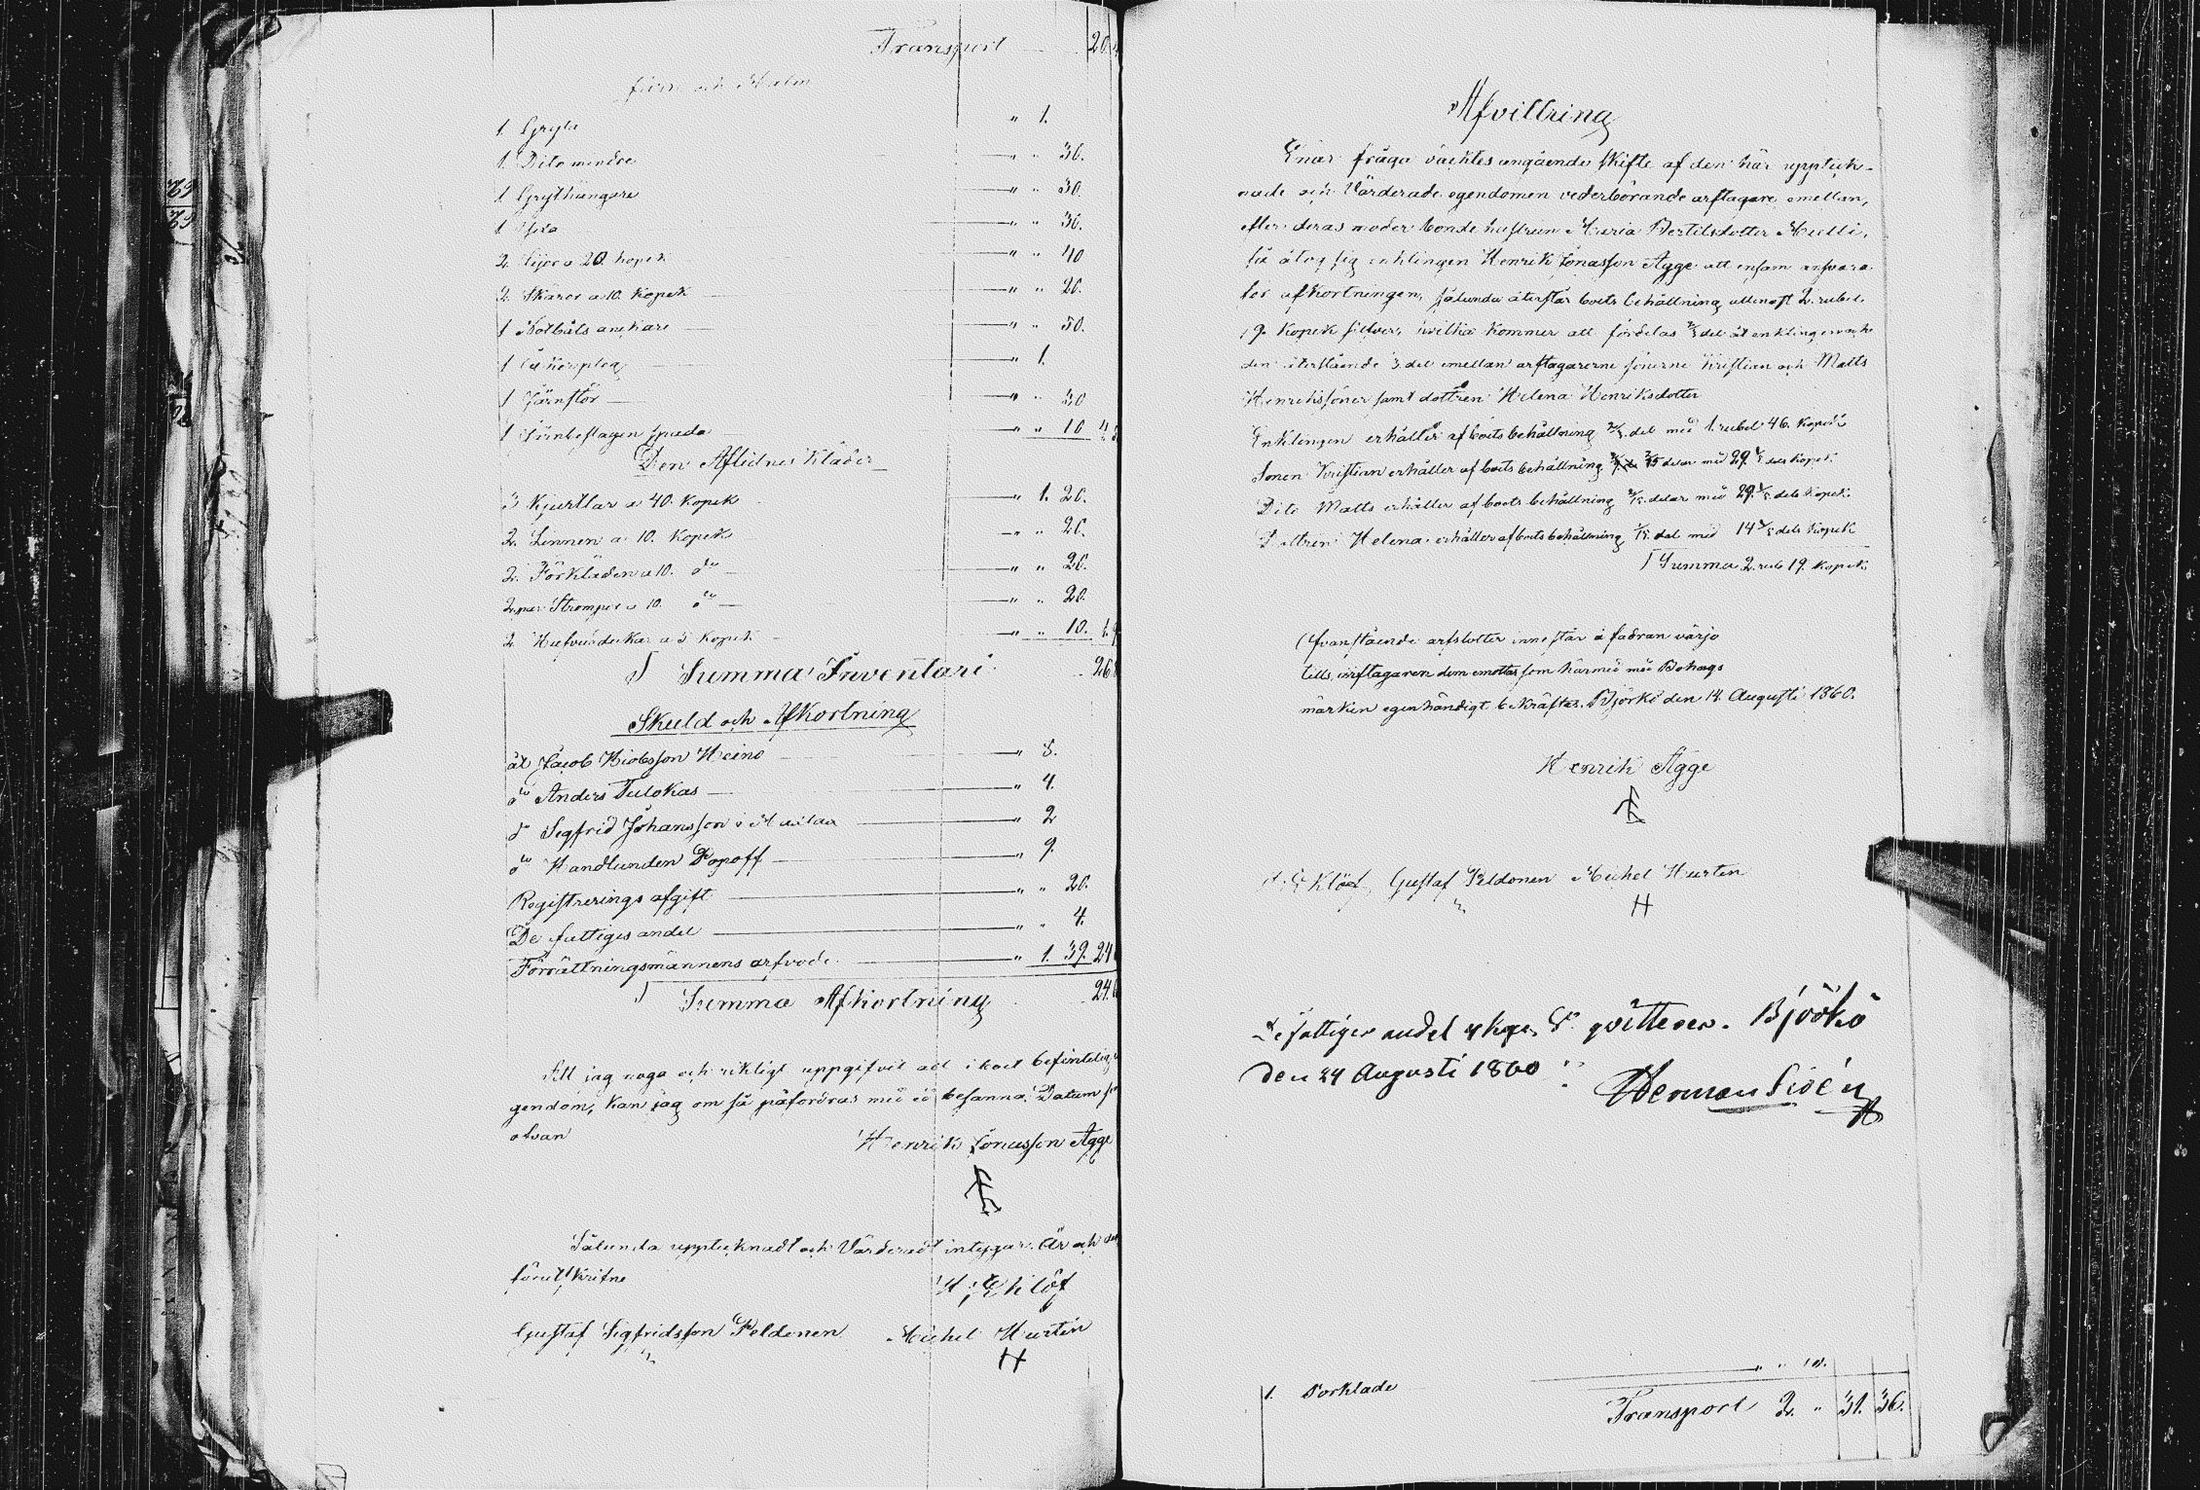 Transport 20
Järn och Malm
1. Gryta " 1.
1. Dito mindre " " 36.
1 Grythängare " " 30.
1 " " 30.
2. Lijor a 20. kopek " " 40
2. Skäror a 10. Kopek " " 20.
1 " " 50.
1 Åkerplog " 1.
1 Järnstör " " 30
1 Järnbeslagen spada " " 10
Den Aflidnes Kläder
3 Kjurtlar a 40. Kopek " 1. 20.
2. Linnen a 10. Kopek " " 20.
2. Förkläden a 10. do " " 20.
2. par Strumpor a 10. do " " 20.
2. Hufvuddukar a 5 Kopek " " 10.
Summa Inventari 26
Skuld och Afkortning
åt Jacob Heino " 8.
do Anders Tulokas " 4.
do Segfrid Johansson i " 2
do Handlanden Popoff " 9.
Registrerings afgift " " 20.
De fattiges andel " " 4.
Förrättningsmännens arfvode " 1. 39. 24
Summa Afkortning 24.
Att jag noga och riktigt uppgifvit all i boet befintelig e
gendom, kan jag om så påfordras med ed besanna. Datum
ofvan
Henrik Jonasson Agge
Sålunda upptecknadt och Värderadt intygar. År och
förutskrifne
H: Eklöf
Gustaf Segfridsson Peldonen Michel Hurtin
H
Afvittring
Enär fråga väcktes angående skifte af den här uppteck-
nade och Värderade egendomen vederbörande arftagare emellan,
efter deras moder bonde hustrun Maria Bertilsdotter
så åtog sig enklingen Henrik Jonasson Agge att ensam ansvara
för afkortningen, sålunda återstår boets behållning allenast 2. rubel.
19. Kopek silfver, hvilka kommer att fördelas 2/3 del åt enklingen och
den återstående 1/3 del emellan arftagarerne sönerne Kristian och Matts
Henrikssöner samt dottren Helena Henriksdotter
Enklingen erhåller af boets behållning 2/3. del med 1. rubel 46. Kopek
Sonen Kristian erhåller af boets behållning 2/15 delar med 29. 1/5 dels Kopek.
Dito Matts erhåller af boets behållning 2/15. delar med 29. 1/5 dels Kopek.
Dottren Helena erhåller af boets behållning 1/15. del med 14 3/5 dels Kopek
Summa 2. rub 19. Kopek
Ofvanstående arfslotter innestår i fadran värjo
tills arftagaren dem emottar som härmed med Bohags
märken egenhändigt bekräftas. Björkö den 14. Augusti 1860.
Henrik Agge
H: Eklöf, Gustaf Peldonen Michel Hurten
H
De fattiges andel 4 Kop. Sr qvitteres. Björkö
den 24 Augusti 1860
Herman
" " 10.
1. Förkläde
Transport 2. " 31. 36.